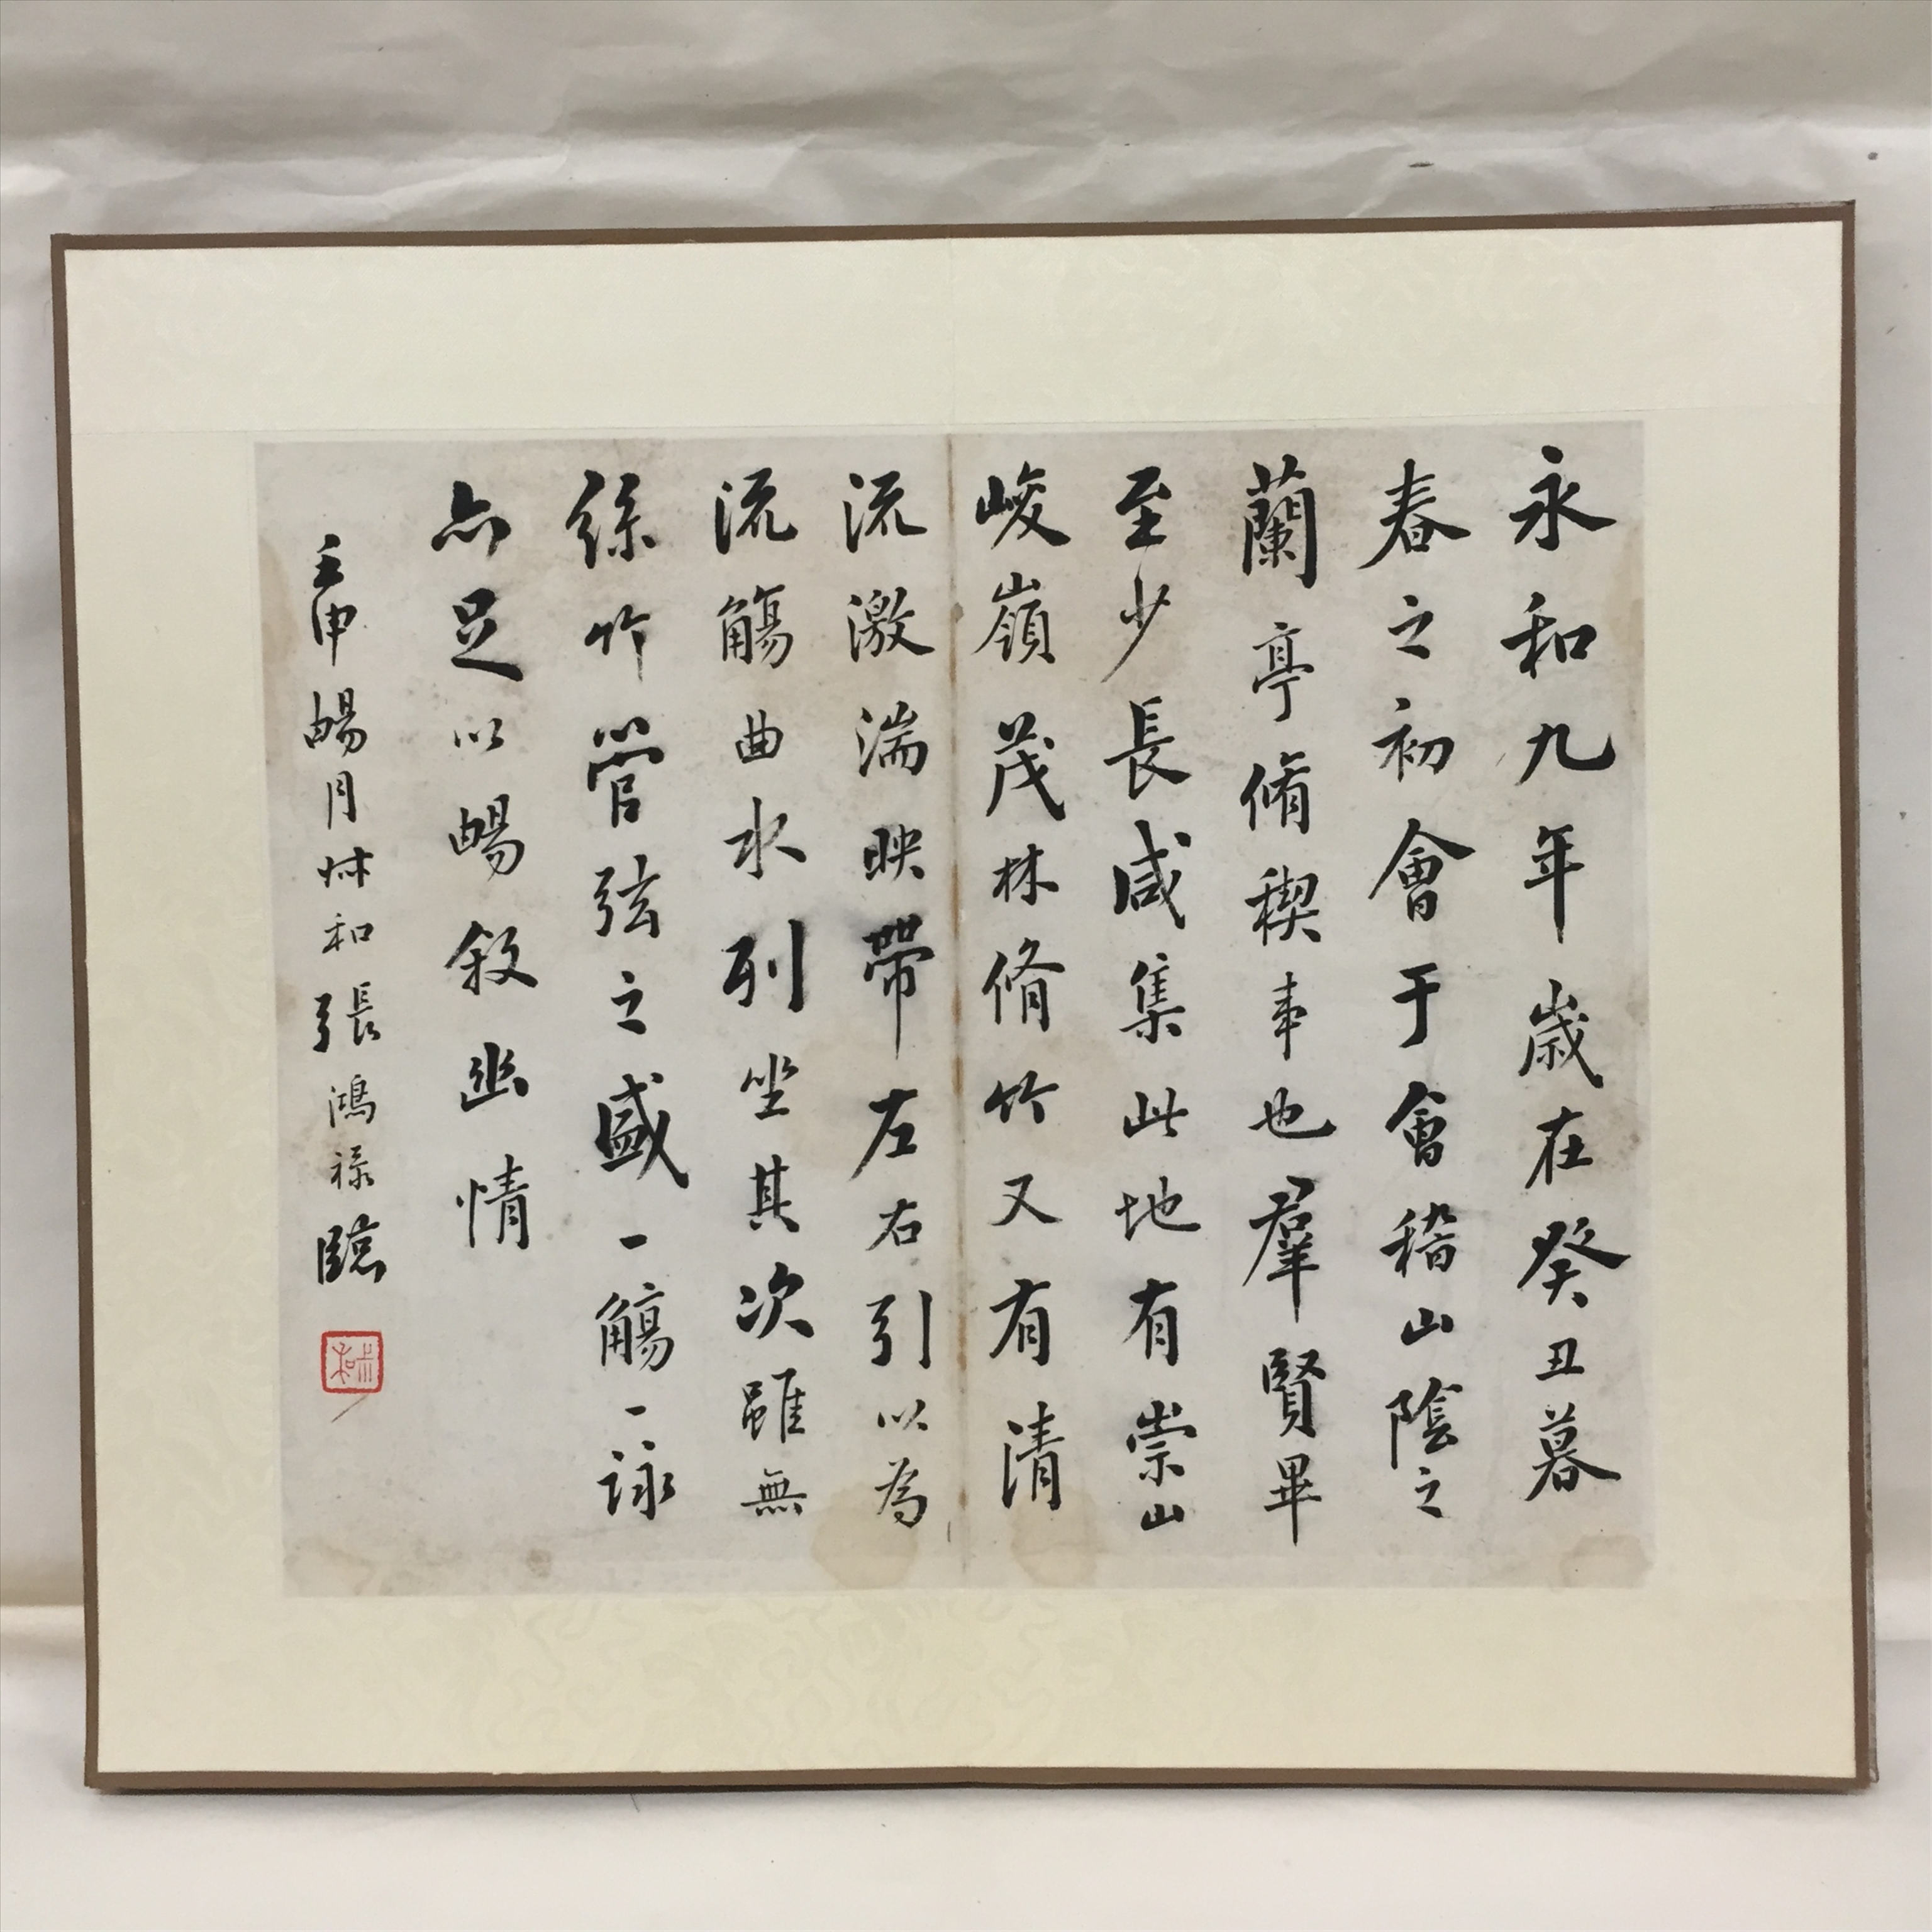 永和九年歲在癸丑暮
春之初會于會稽山陰之
蘭亭脩稧事也羣賢畢
至少長咸集此地有崇山
峻嶺茂林脩竹又有清
流激湍映帶左右引以為
流觴曲水列坐其次雖無
絲竹管弦之盛一觴一詠
亦足以暢敘幽情
壬申暢月尗和張鴻祿臨